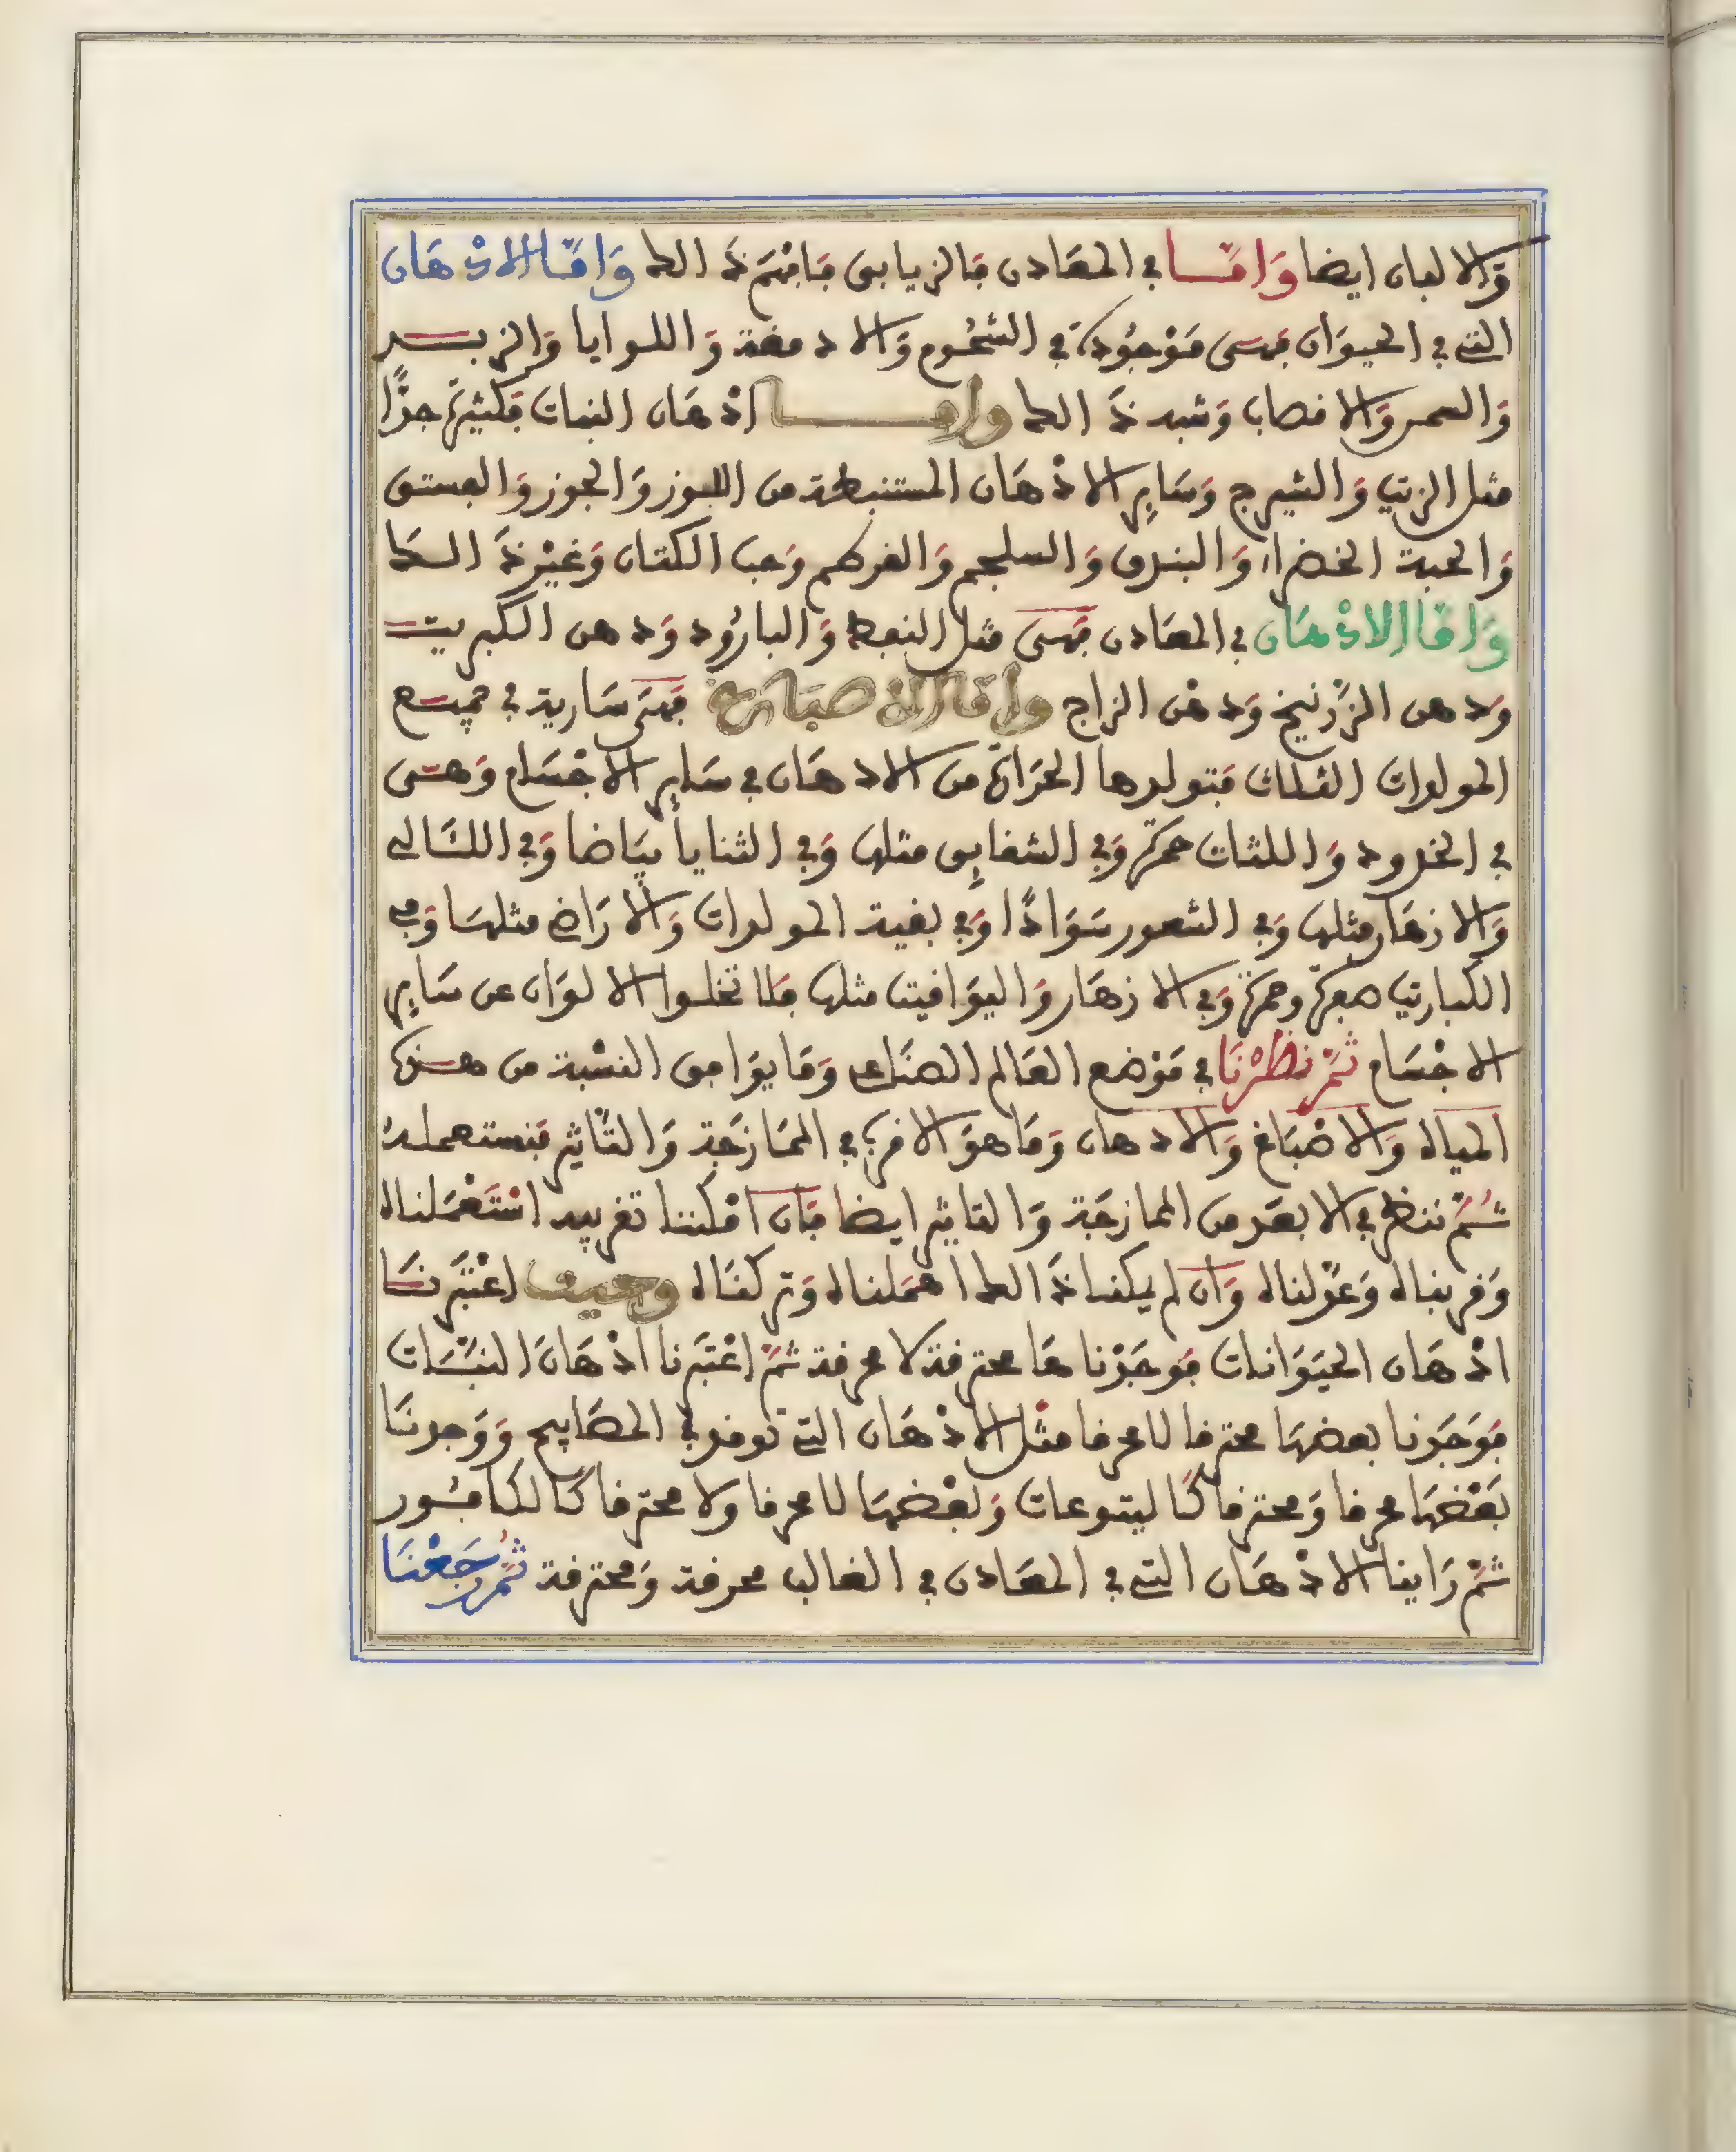 وَالالبان ايضا وَامَّــا في المعَادن فالزيابق فَافهَم ذَالك وَامَّا الادْهَان
التي في الحيوَان فهي مَوْجُودَة في الشحُوم وَالادمغة وَاللوايا وَالزبــد
وَالعصر وَالاقصاب وَشبه ذَالك وامــــا ادْهَان النبات فكثيرَة جدًّا
مثل الزيت وَالشيرج وَسَايِر الادْهَان المستنبطة من اللوز وَالجوز وَالفستق
وَالحبة الخضرا، وَالبندق وَالسلجم وَالقرطم وَحب الكتان وَغيْر ذَالــك
وَامَّا الادْهَان في المعَادن فهي مثل النفط وَالبارُود وَدهن الكبريت
وَدهن الزّرنيخ وَدهْن الزاج وامَّا الاصبَاغ فهيَ سَارية في جميـع
المولدات الثلاث فتولدها الحرَارة من الادهَان في سَايِر الاجْسَام وَهـي
في الخدود وَاللثات حمرَة وَفي الشقايِق مثلها وَفي الثنايا بيَاضا وَفي اللئَالي
وَالازهَار مثلها وَفي الشعور سَوَادًا وَفي بقية المولدات وَالارَاضي مثلهَا وَفي
الكباريت صفرَة وحمرَة وَفي الازهَار وَاليوَاقيت مثلها فلا تخلـوا الالوَان عن سَايِر
الاجْسَام ثمَّ نظرْنَا في مَوْضع العَالم الصنَاعي وَمَا يوَافق النسْبة من هـذه
المياه وَالاصْبَاغ وَالادهان وَمَا هوَ الاقرب في الممَازجَة وَالتَّاثير فنستعملـهُ
ثُـمَّ ننظر في الابعَد من الممازجَة وَالتاثير ايضا فَان امْكننا تقريبه اسْتَعْمَلناه
وَقربناه وَعَدّلناه وَان لم يمكنا ذَالك اهمَلناه وَتركنَاه وحيث اعْتبَرنَـا
ادْهَان الحيَوَانات فوَجَدْنا هَا محترقة لا محرقة ثمَّ اعْتبَرنا ادْهَانَ النبَـات
فوَجَدنا بعضهَا محترقا لا محرقا مثْل الادْهَان التي توقد في المصَابيح وَوَجدنَا
بَعْضهَا محرقا وَمحترقا كَاليتوعات وَبعْضهَا لا محرقا ولا محترقا كَالكافـور
ثمَّ رَاينا الادْهَان التي في المعَادن في الغالب محرقة وَمحترقة ثُمَّ رَجَعْنَا